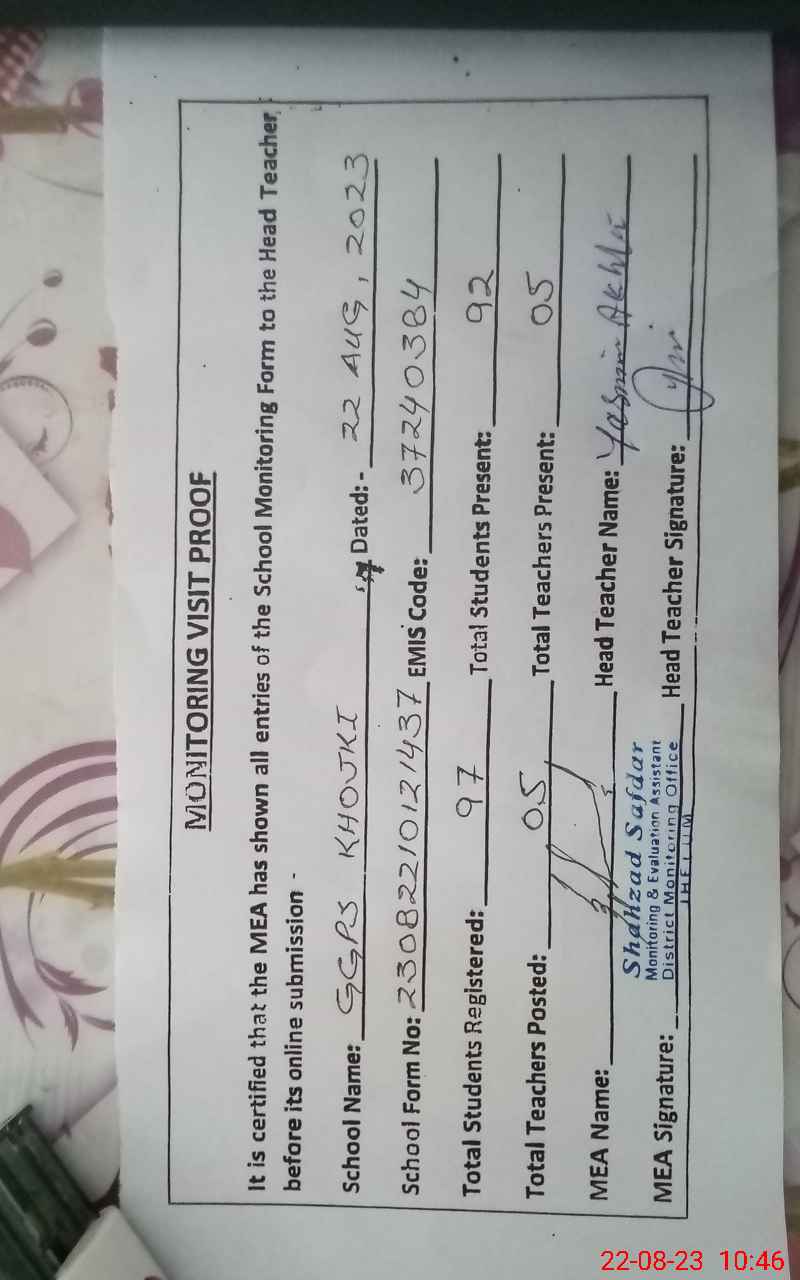 MONITORING VISIT PROOF
It is certified that the MEA has shown all entries of the School Monitoring Form to the Head Teacher
before its online submission -
School Name: GGPS KHOJKI Dated: - 22 AUG, 2023
School Form No: 2308221012 1437 EMIS Code: 37240384
Total Students Registered: 97 Total Students Present: 92
Total Teachers Posted: 05 Total Teachers Present: 05
MEA Name: Head Teacher Name: Yasmin Akhtar
Shahzad Safdar
Monitoring & Evaluation Assistant
District Monitoring Office
JHELUM
MEA Signature: Head Teacher Signature:
22-08-23 10:46